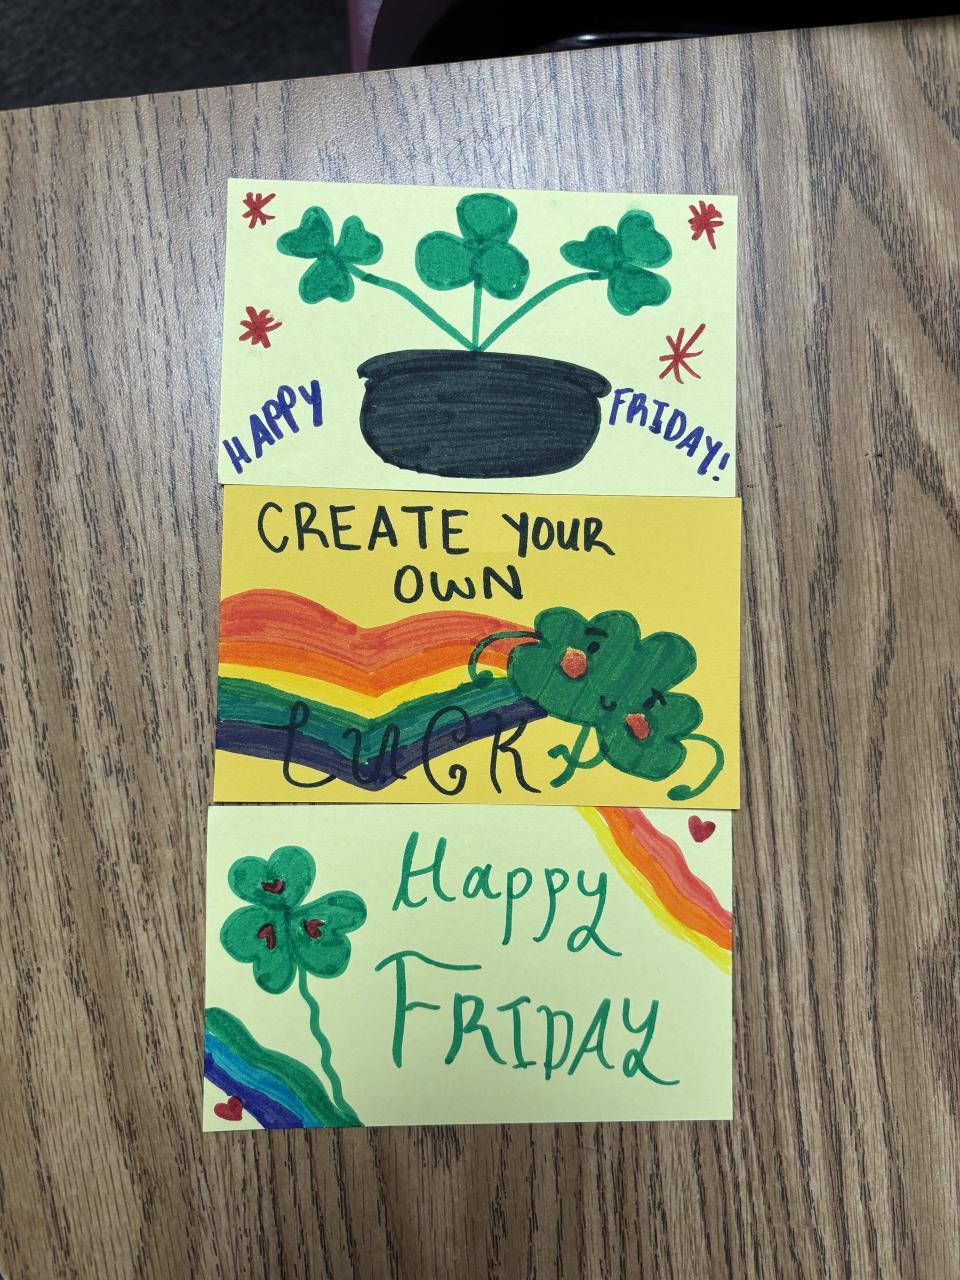 HAPPY FRIDAY!
CREATE YOUR
OWN
LUCK
Happy
FRIDAY